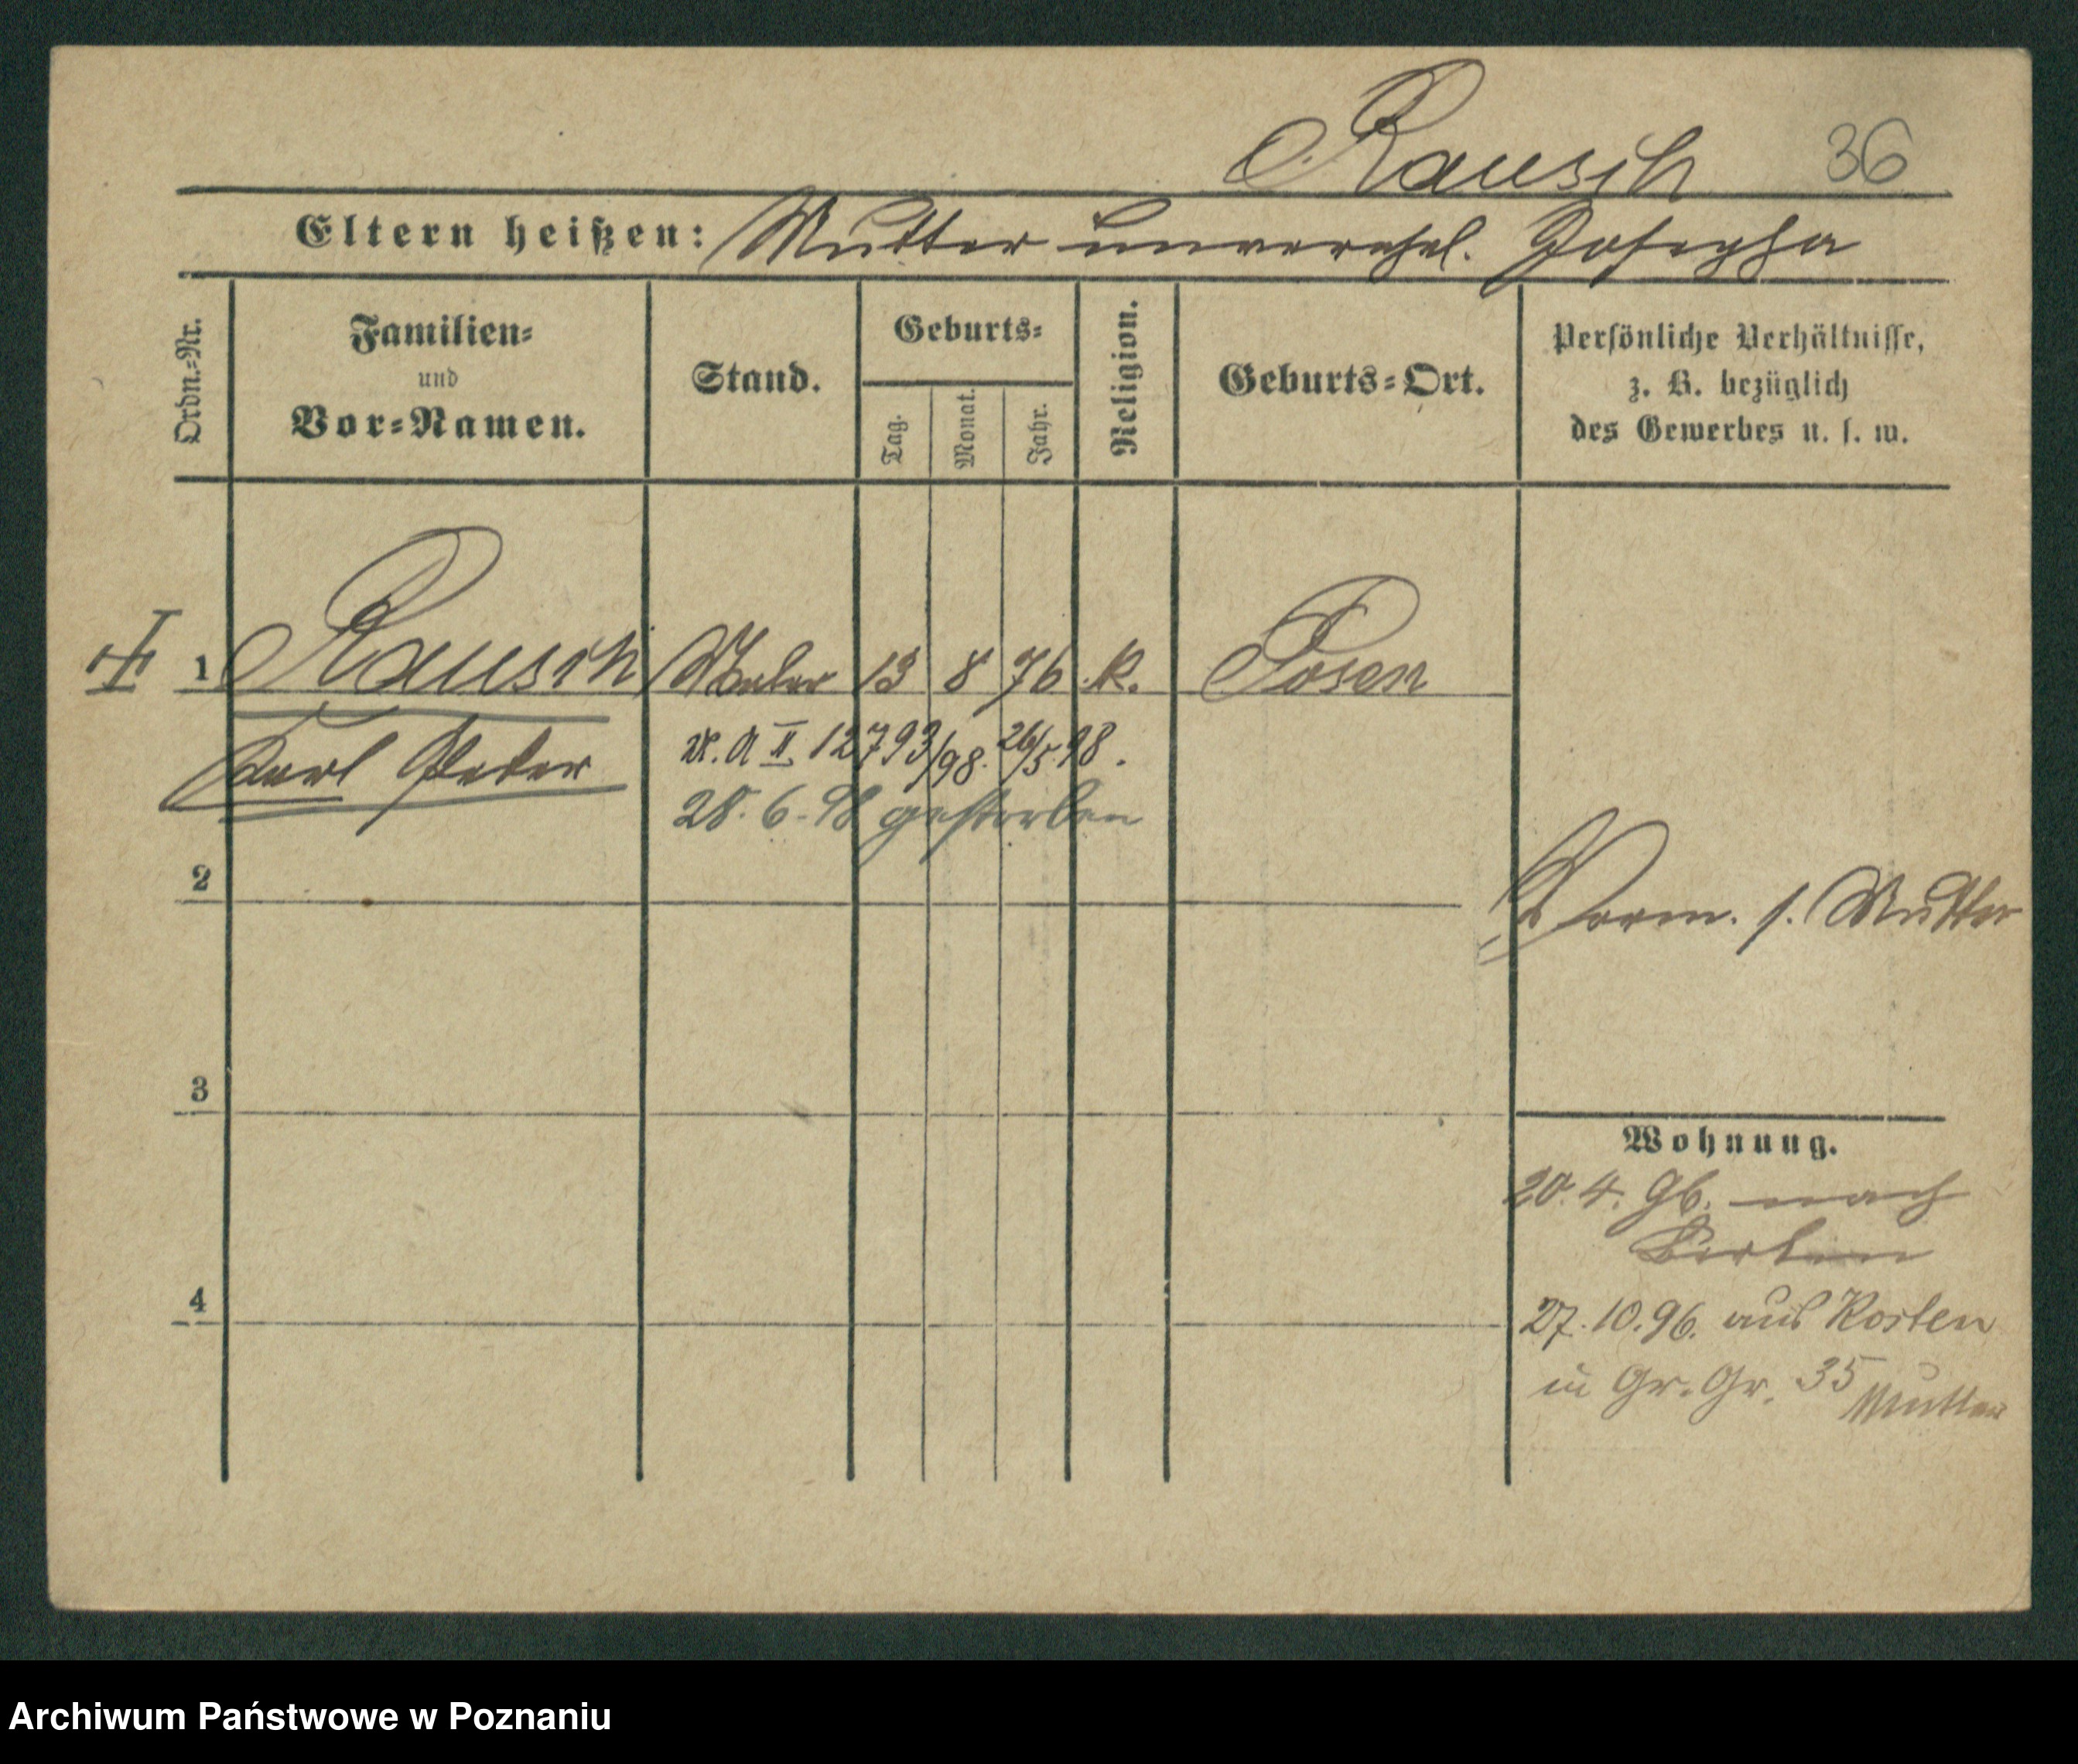 Rausch 36
Eltern heißen: Mutter unverehel. Josepha
Ordn.=Nr.
Familien=
und
Vor=Namen.
Stand.
Geburts=
Tag.
Monat.
Jahr.
Religion.
Geburts=Ort.
Persönliche Verhältnisse,
z. B. bezüglich
des Gewerbes u. s. w.
1 Rausch Maler 13 8 76 K. Posen
Karl Peter
A II 12793/98. 26/5 98.
28. 6. 98 gestorben
2
Verm. s. Mutter
3
Wohnung.
20. 4. 96. nach
4
27. 10. 96. aus Kosten
in Gr. Gr. 35 Mutter
Archiwum Państwowe w Poznaniu